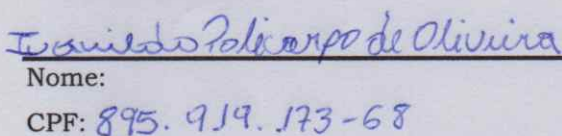 Ivanildo Policarpo de Oliveira
Nome:
CPF: 895.919.173-68